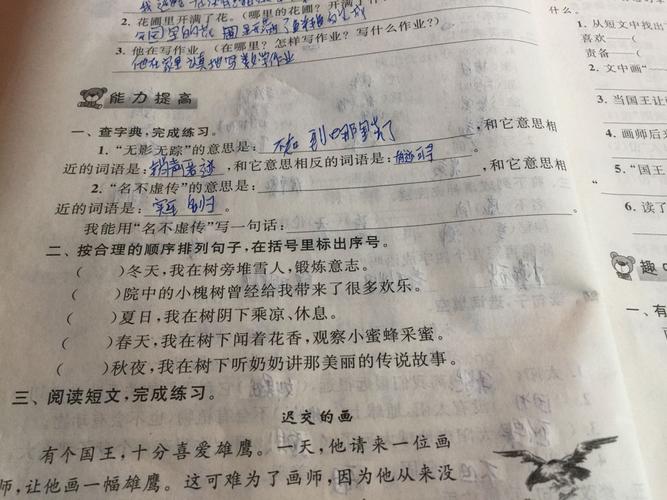 2. 花圃里开满了花。(哪里的花圃? 开满了
3. 他在写作业 (在哪里? 怎样写作业? 写什么作业?)
他在家里认真地写数学作业
能力提高
一、查字典,完成练习。
1.“无影无踪”的意思是: 不知到哪里去了 ,和它意思相
近的词语是: 销声匿迹 ,和它意思相反的词语是:
2.“名不虚传”的意思是: ,和它意思相
近的词语是: 。
我能用“名不虚传”写一句话:
二、按合理的顺序排列句子,在括号里标出序号。
( )冬天,我在树旁堆雪人,锻炼意志。
( )院中的小槐树曾经给我带来了很多欢乐。
( )夏日,我在树阴下乘凉、休息。
( )春天,我在树下闻着花香,观察小蜜蜂采蜜。
( )秋夜,我在树下听奶奶讲那美丽的传说故事。
三、阅读短文,完成练习。
迟交的画
有个国王,十分喜爱雄鹰。一天,他请来一位画
师,让他画一幅雄鹰。这可难为了画师,因为他从来没
什么。
1. 从短文中找出
喜欢——(
责备——(
2. 文中画“
3. 当国王让
4. 画师后来
5. “国王
6. 读了
趣中
一、有